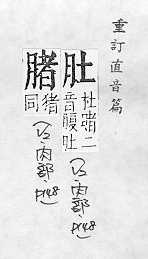 重訂直音篇
肚 杜睹二
音腹肚
(卷2·肉部·P148)
䐗 猪
同
(卷2·肉部·P148)